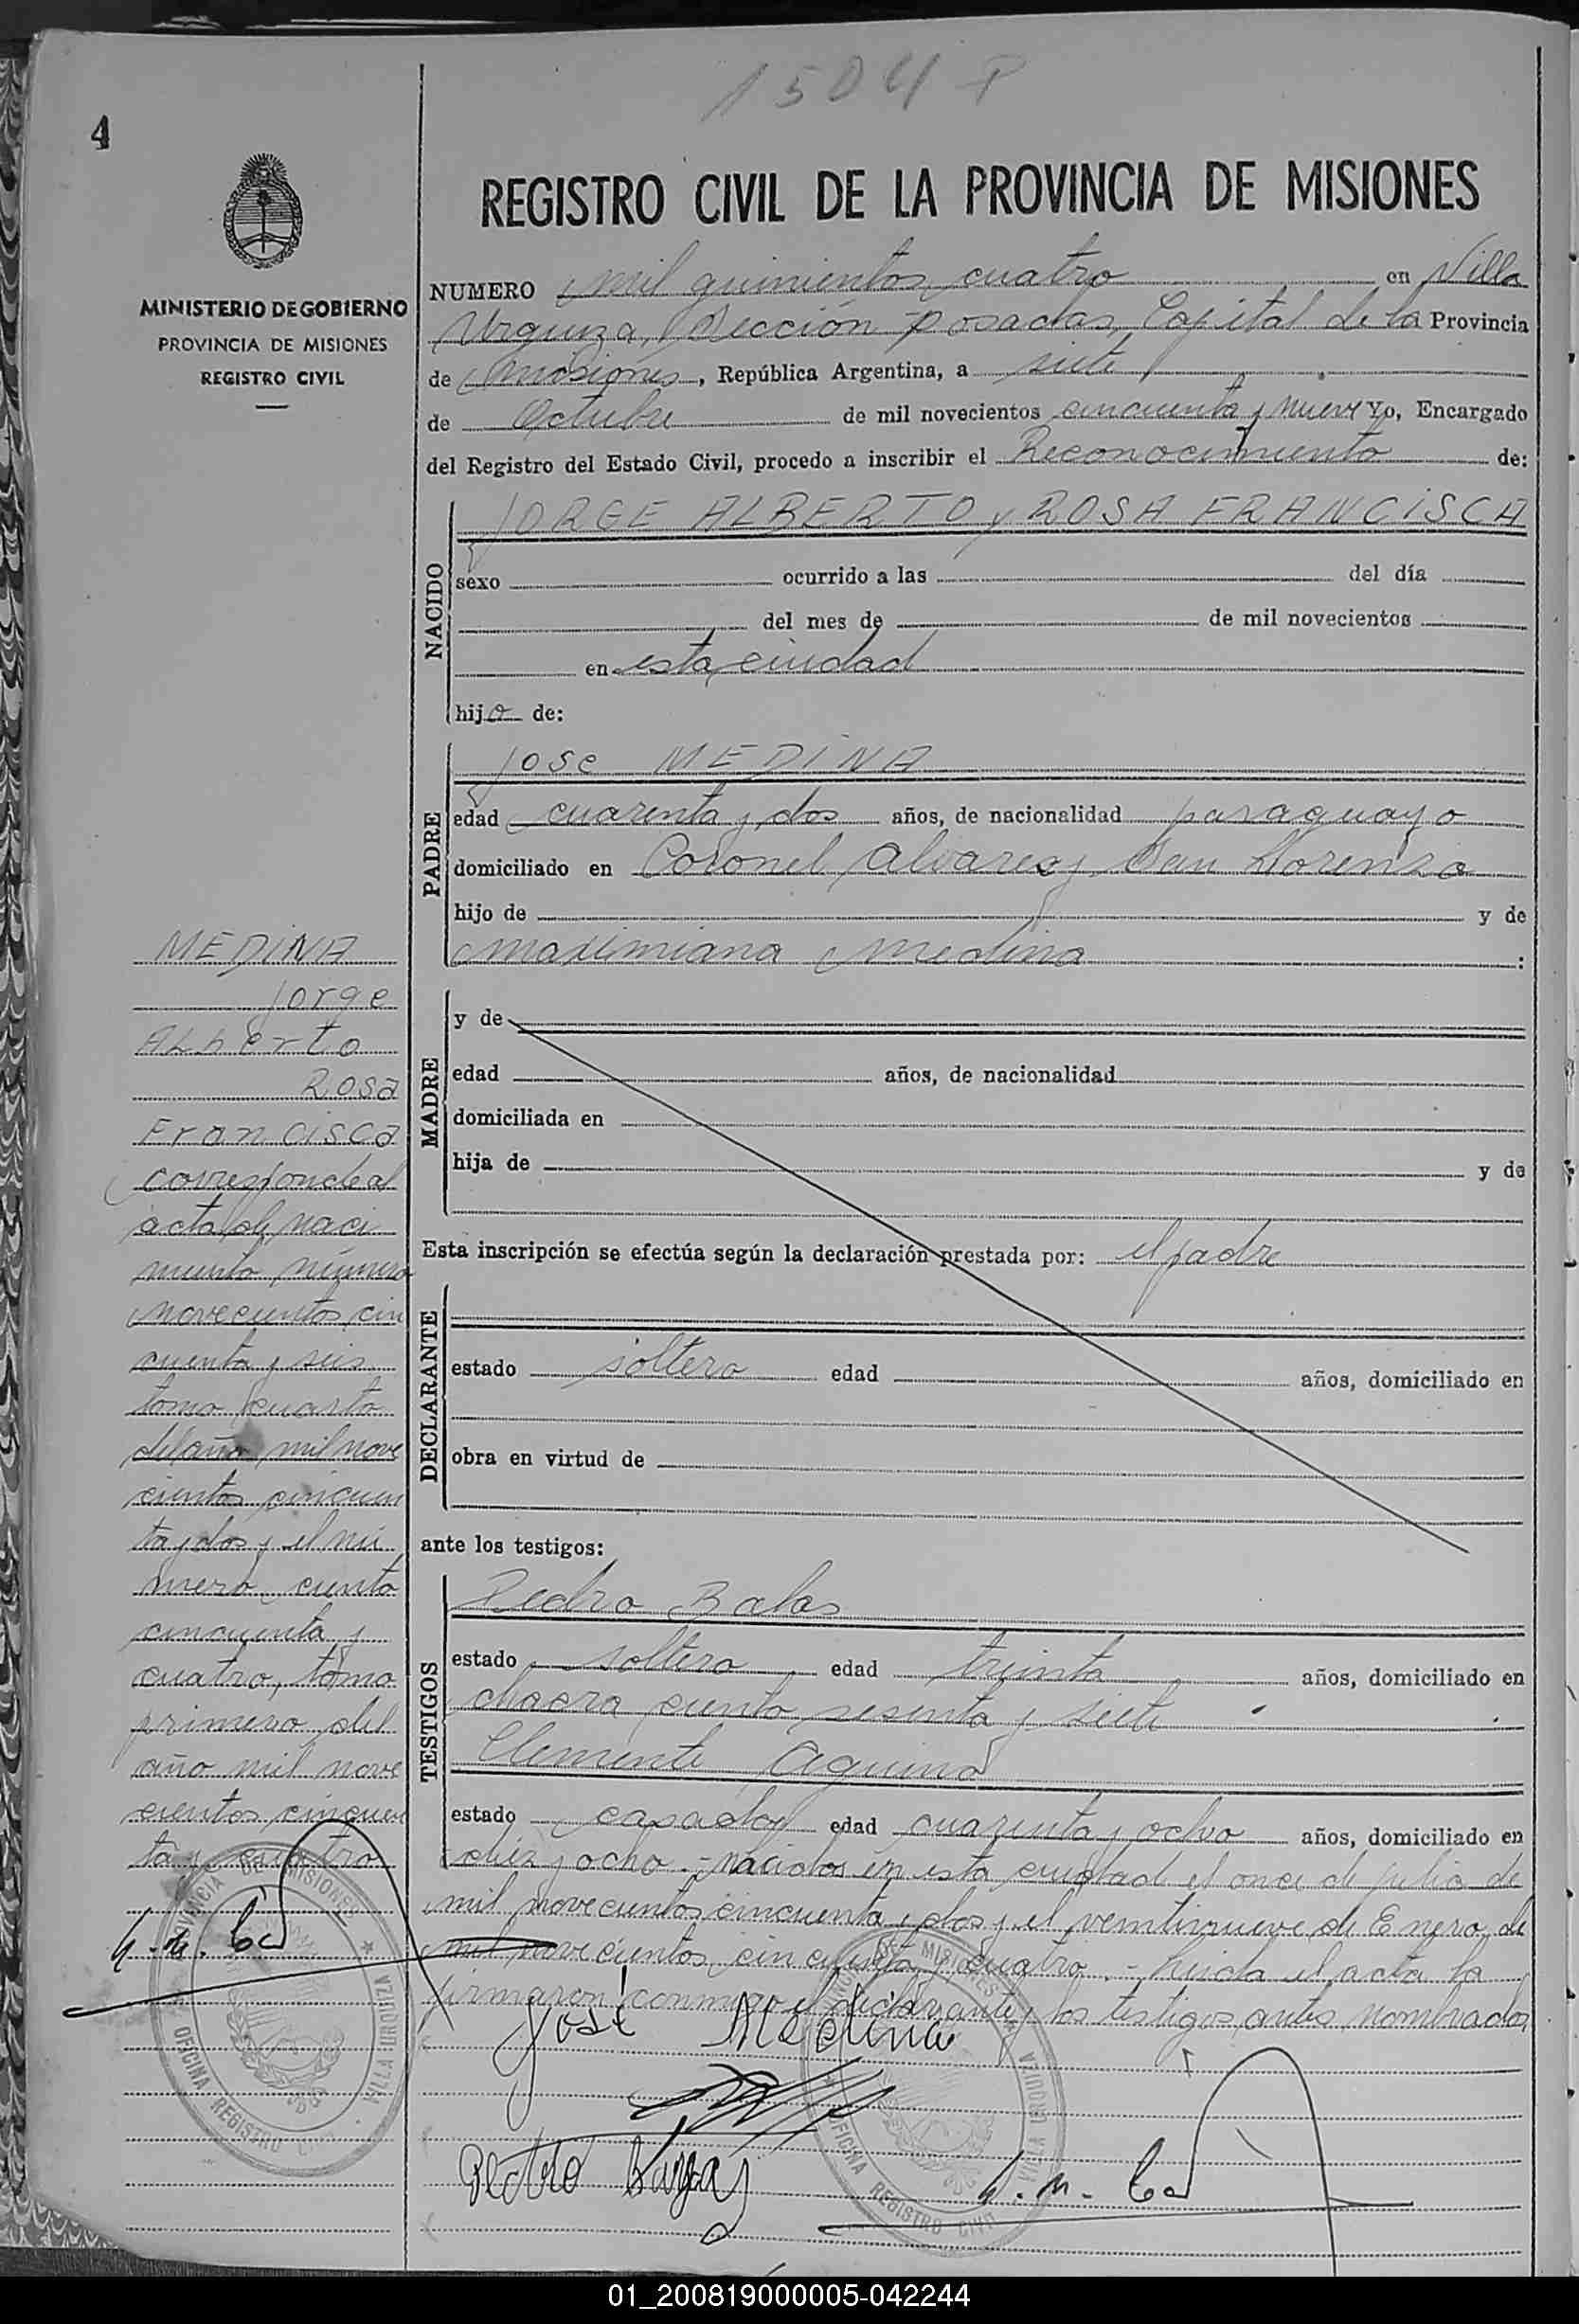 1504 P
4
REGISTRO CIVIL DE LA PROVINCIA DE MISIONES
MINISTERIO DE GOBIERNO
PROVINCIA DE MISIONES
REGISTRO CIVIL
NUMERO mil quinientos cuatro en Villa
Urquiza, Sección Posadas, Capital de la Provincia
de Misiones, República Argentina, a siete
de Octubre de mil novecientos cincuenta y nueve Yo, Encargado
del Registro del Estado Civil, procedo a inscribir el Reconocimiento de:
NACIDO
JORGE ALBERTO y ROSA FRANCISCA
sexo ocurrido a las del día
del mes de de mil novecientos
en esta ciudad
hijo de:
PADRE
Jose MEDINA
edad cuarenta y dos años, de nacionalidad paraguayo
domiciliado en Coronel Alvarez y San Lorenzo
hijo de y de
Maximiana Medina :
MADRE
y de
edad años, de nacionalidad
domiciliada en
hija de y de
Esta inscripción se efectúa según la declaración prestada por: el padre
DECLARANTE
estado soltero edad años, domiciliado en
obra en virtud de
ante los testigos:
TESTIGOS
Pedro
estado soltero edad treinta años, domiciliado en
chacra ciento sesenta y siete
Clemente Aquino
estado casado edad cuarenta y ocho años, domiciliado en
diez y ocho.- nacidos en esta ciudad el once de julio de
mil novecientos cincuenta y dos y el veintinueve de Enero de
mil novecientos cincuenta y cuatro.- leida el acta la
firmaron conmigo el declarante y los testigos antes nombrados
José Medina
Pedro
MEDINA
Jorge
Alberto
Rosa
Francisca
corresponde al
acta de naci
miento número
novecientos cin
cuenta y seis
tomo cuarto
del año mil nove
cientos cincuen
ta y dos y el nú
mero ciento
cincuenta y
cuatro, tomo
primero del
año mil nove
cientos cincuen
ta y cuatro
PROVINCIA DE MISIONES
OFICINA REGISTRO CIVIL
VILLA URQUIZA
PROVINCIA DE MISIONES
OFICINA REGISTRO CIVIL
VILLA URQUIZA
01_200819000005-042244